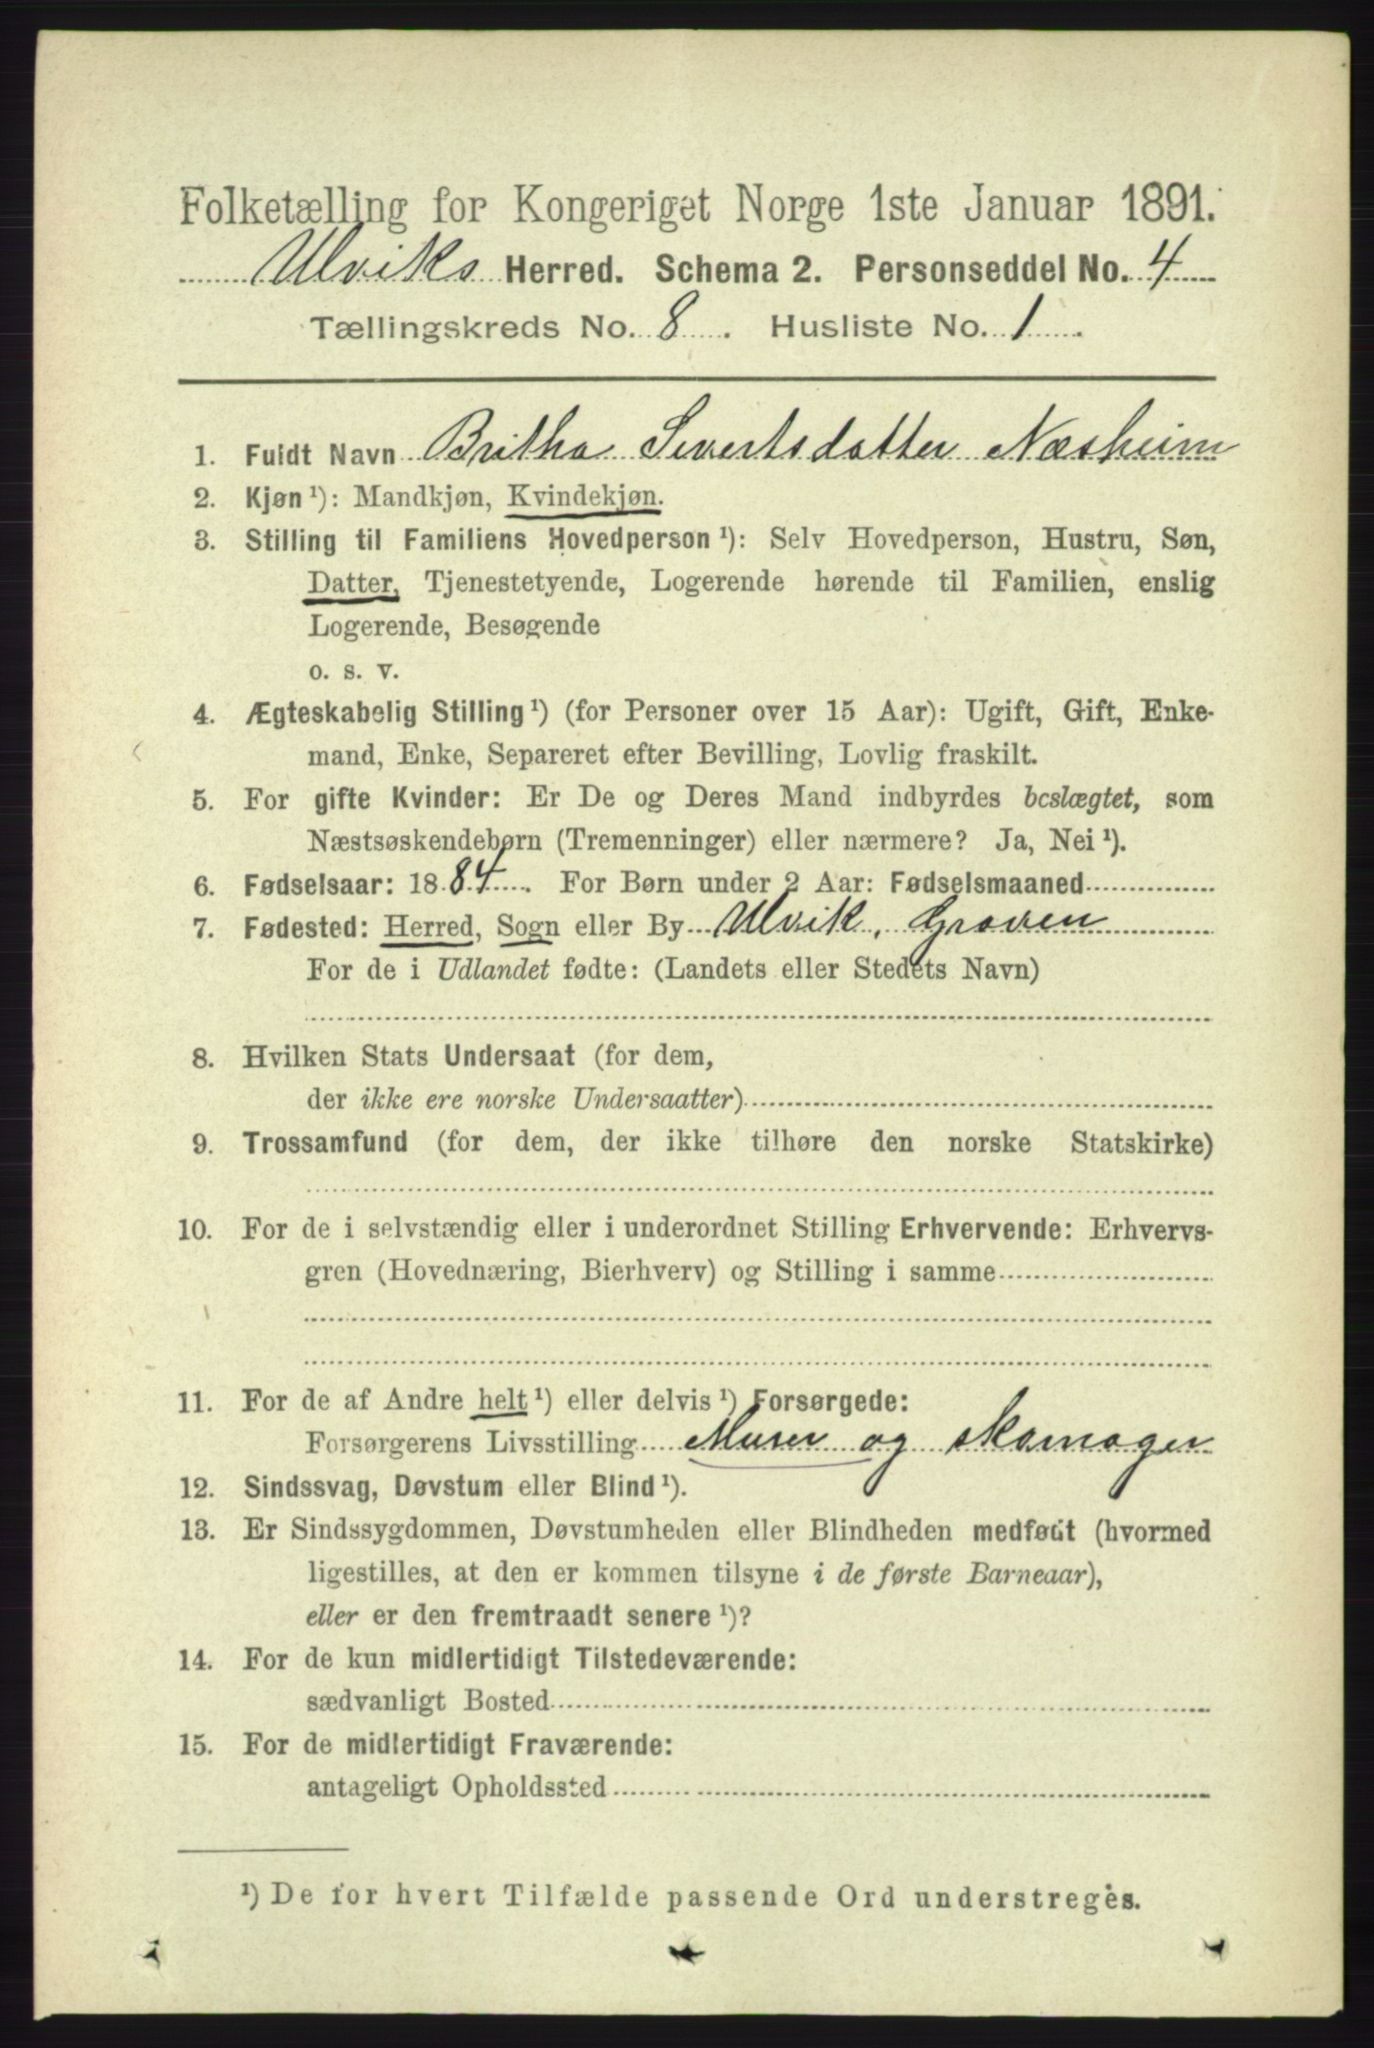 Folketælling for Kongeriget Norge 1ste Januar 1891.
Ulviks Herred. Schema 2. Personseddel No. 4
Tællingskreds No. 8. Husliste No. 1.
1. Fuldt Navn Britha Sivertsdatter Næsheim
2. Kjøn ¹): Mandkjøn, Kvindekjøn.
3. Stilling til Familiens Hovedperson ¹): Selv Hovedperson, Hustru, Søn,
Datter, Tjenestetyende, Logerende hørende til Familien, enslig
Logerende, Besøgende
o. s. v.
4. Ægteskabelig Stilling ¹) (for Personer over 15 Aar): Ugift, Gift, Enke-
mand, Enke, Separeret efter Bevilling, Lovlig fraskilt.
5. For gifte Kvinder: Er De og Deres Mand indbyrdes beslægtet, som
Næstsøskendebørn (Tremenninger) eller nærmere? Ja, Nei ¹).
6. Fødselsaar: 1884. For Børn under 2 Aar: Fødselsmaaned
7. Fødested: Herred, Sogn eller By Ulvik, Graven
For de i Udlandet fødte: (Landets eller Stedets Navn)
8. Hvilken Stats Undersaat (for dem,
der ikke ere norske Undersaatter)
9. Trossamfund (for dem, der ikke tilhøre den norske Statskirke)
10. For de i selvstændig eller i underordnet Stilling Erhvervende: Erhvervs-
gren (Hovednæring, Bierhverv) og Stilling i samme
11. For de af Andre helt ¹) eller delvis ¹) Forsørgede:
Forsørgerens Livsstilling Murer og skomager
12. Sindssvag, Døvstum eller Blind ¹).
13. Er Sindssygdommen, Døvstumheden eller Blindheden medfødt (hvormed
ligestilles, at den er kommen tilsyne i de første Barneaar),
eller er den fremtraadt senere ¹)?
14. For de kun midlertidigt Tilstedeværende:
sædvanligt Bosted
15. For de midlertidigt Fraværende:
antageligt Opholdssted
¹) De for hvert Tilfælde passende Ord understreges.